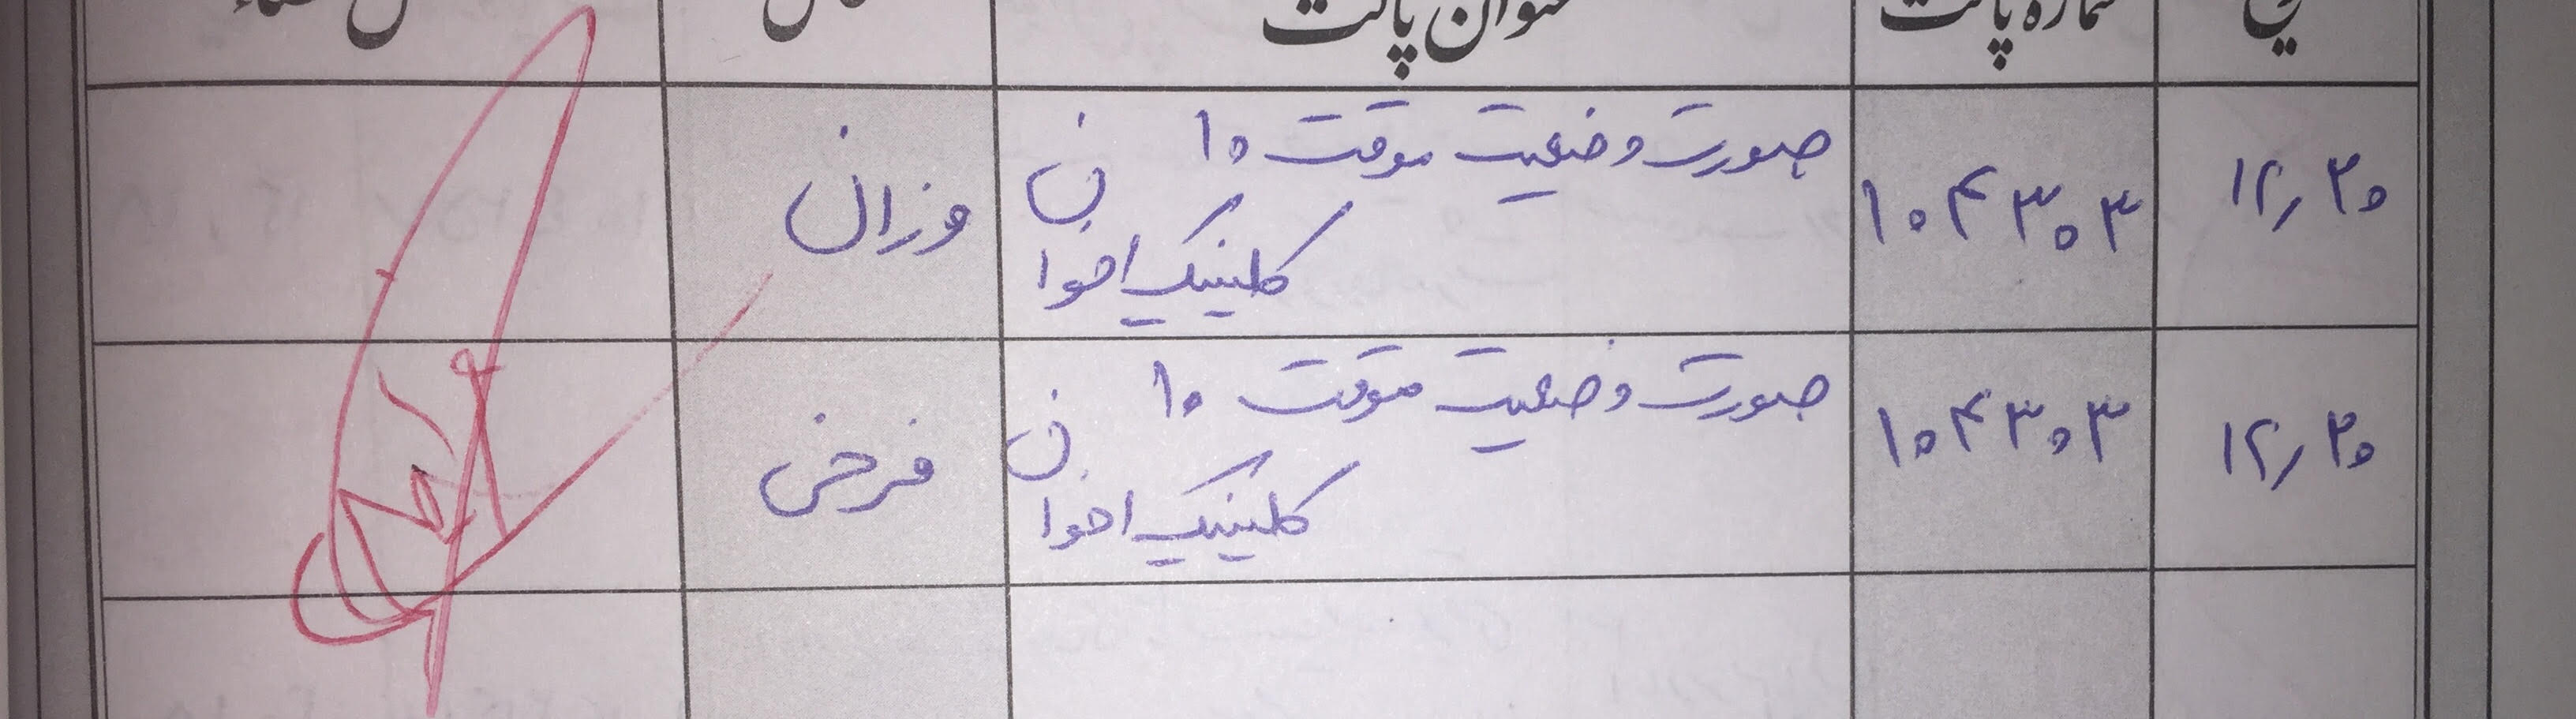 شماره پاکت عنوان پاکت
۱۲/۳۰ ۱۰۴۳۰۳ صورت وضعیت موقت ۱۰ وزان
کلینیک اخوان
۱۲/۳۰ ۱۰۴۳۰۳ صورت وضعیت موقت ۱۰
کلینیک اخوان